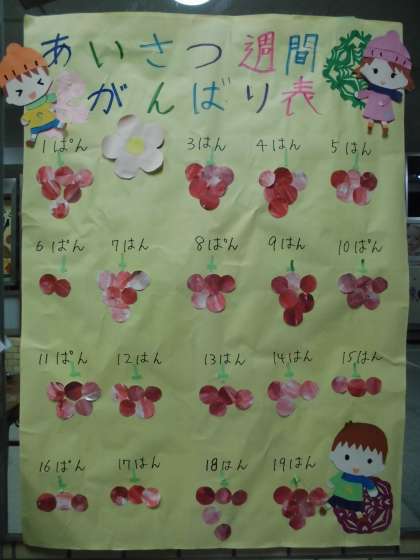 あいさつ週間
がんばり表
1ぱん 3はん 4はん 5はん
6ぱん 7はん 8ぱん 9はん 10ぱん
11ぱん 12はん 13はん 14はん 15はん
16ぱん 17はん 18はん 19はん